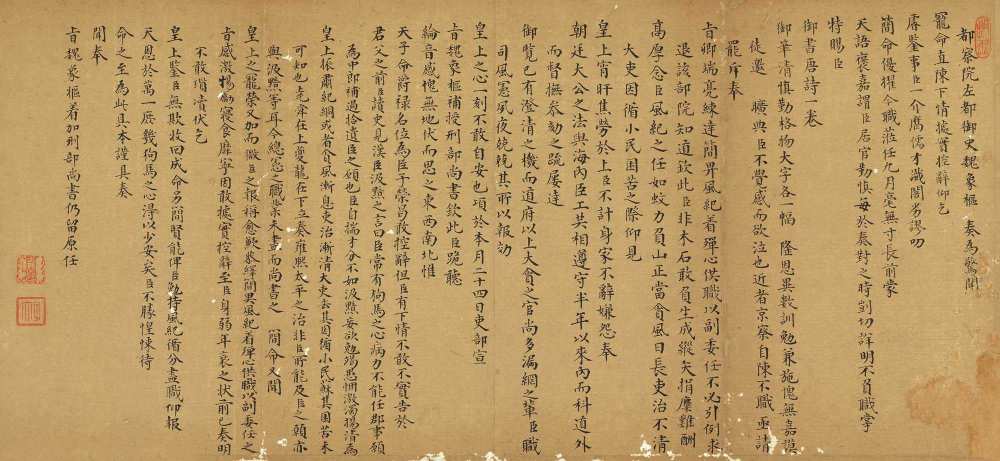 都察院左都御史魏象樞 奏為驚聞
寵命直陳下情據實控辭仰乞
睿鑒事臣一介庸儒才識闇劣謬叨
簡命優擢今職蒞任九月毫無寸長前蒙
天語褒嘉謂臣居官勤慎每於奏對之時剴切詳明不負職掌
特賜臣
御書唐詩一卷
御筆清慎勤格物大字各一幅 隆恩異數訓勉兼施愧無嘉謨
徒邀 曠典臣不覺感而欲泣也近者京察自陳不職亟請
罷斥奉
旨卿端亮練達簡畀風紀着殫心供職以副委任不必引例求
退該部院知道欽此臣非木石敢負生成縱矢捐麋難酬
高厚念臣風紀之任如蚊力負山正當貪風日長吏治不清
大吏因循小民困苦之際仰見
皇上宵旰焦勞於上臣不計身家不辭嫌怨奉
朝廷大公之法與海內臣工共相遵守半年以來內而科道外
而督撫參劾之疏屢達
御覽已有澄清之機而道府以上大貪之官尚多漏網之輩臣職
司風憲夙夜兢兢其所以報効
皇上之心一刻不敢自安也項於本月二十四日吏部宣
旨魏象樞補授刑部尚書欽此臣跪聽
綸音感愧無地伏而思之東西南北惟
天子命爵祿名位為臣子榮苟敢控辭但臣有下情不敢不實告於
君父之前臣讀史見漢臣汲黯之言曰臣常有狗馬之心病力不能任郡事願
為中郎補過拾遺臣之願也臣自揣才分不如汲黯妄欲勉竭愚悃激濁揚清為
皇上振肅紀綱或者貪風漸息吏治漸清大吏去其因循小民蘇其困苦未
可知也堯舜在上夔龍在下立奏雍熙太平之治非臣所能及臣之願亦
與汲黯等耳今總憲之職業未盡而尚書之 簡命又聞
皇上之寵榮又加而微臣之報稱愈歉恭繹簡畀風紀着殫心供職以副委任之
旨感激惕勵寢食靡寧因敢據實控辭至臣身弱年衰之狀前已奏明
不敢瑣瀆伏乞
皇上鑒臣無欺收回成命另簡賢能俾臣勉持風紀備分盡職仰報
天恩於萬一庶幾狗馬之心淂以少安矣臣不勝惶悚待
命之至為此具本謹具奏
聞奉
旨魏象樞着加刑部尚書仍留原任